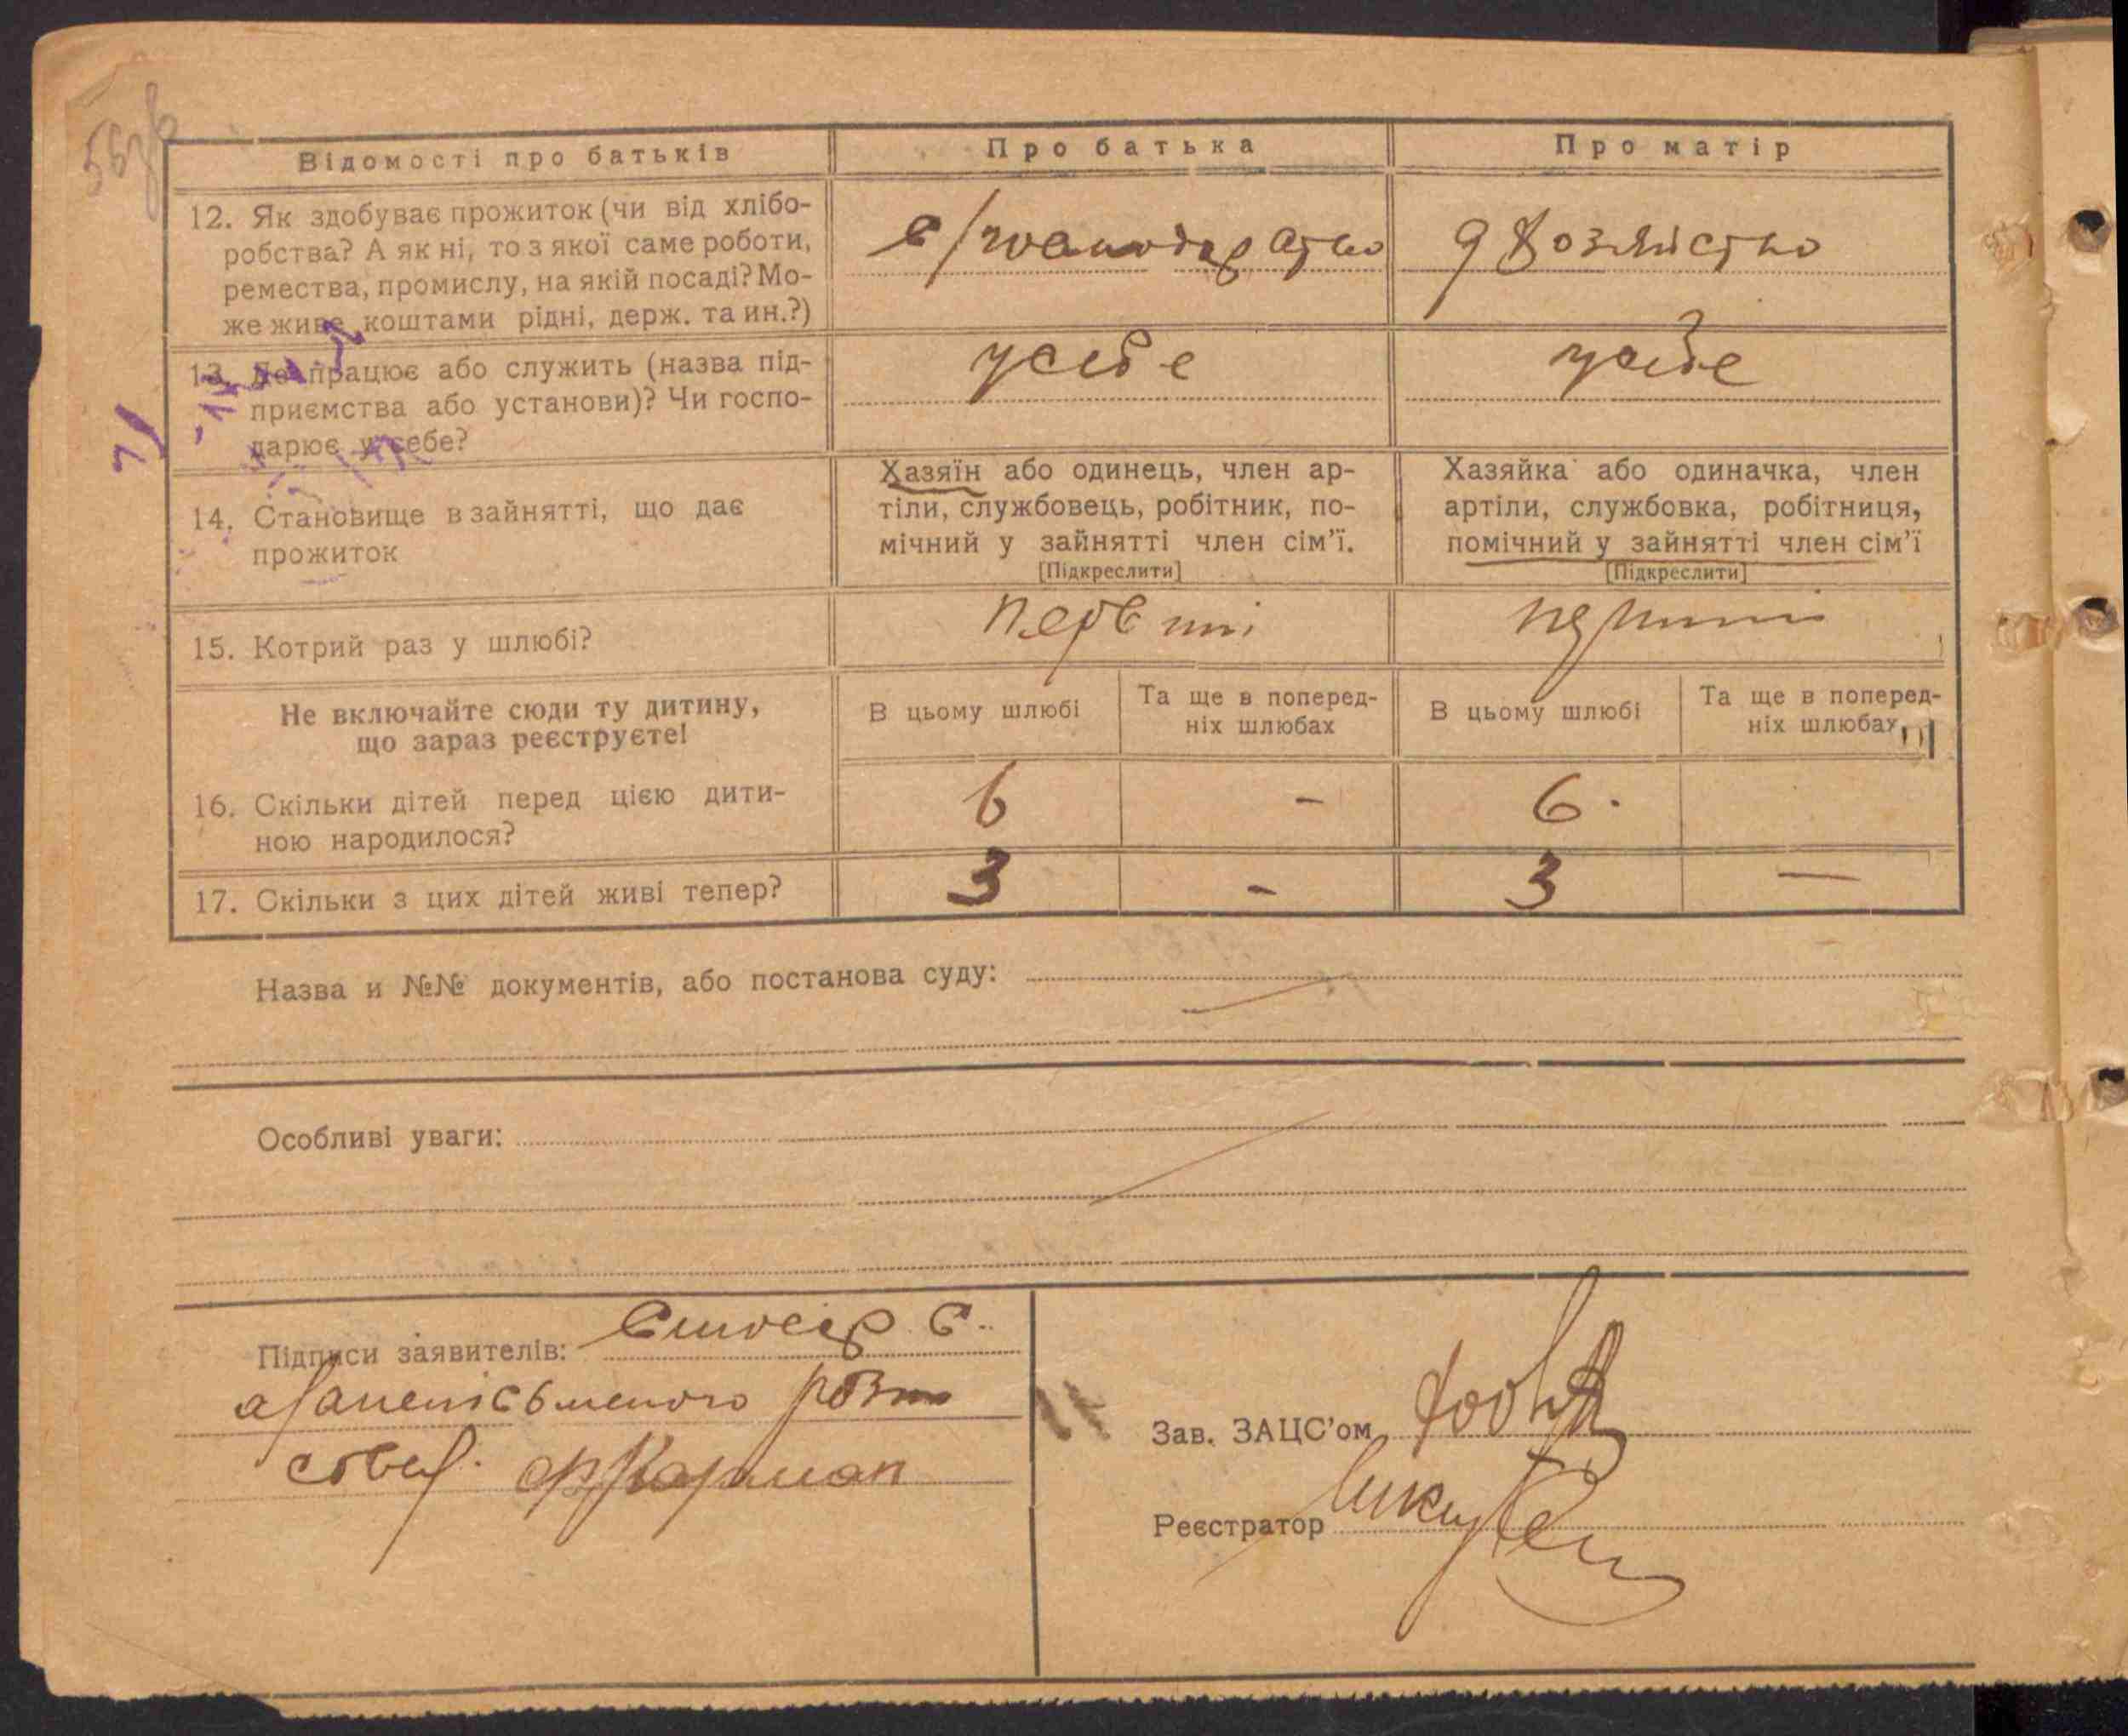 56зв
Відомості про батьків
Про батька
Про матір
12. Як здобуває прожиток (чи від хлібо-
робства? А як ні, то з якої саме роботи,
ремества, промислу, на якій посаді? Мо-
же живе коштами рідні, держ. та ин.?)
с/господарство
д хозяйство
13. Де працює або служить (назва під-
приємства або установи)? Чи госпо-
дарює у себе?
у себе
у себе
14. Становище в зайнятті, що дає
прожиток
Хазяїн або одинець, член ар-
тіли, службовець, робітник, по-
мічний у зайнятті член сім'ї.
[Підкреслити]
Хазяйка або одиначка, член
артіли, службовка, робітниця,
помічний у зайнятті член сім'ї
[Підкреслити]
15. Котрий раз у шлюбі?
первший
перший
Не включайте сюди ту дитину,
що зараз реєструєте!
В цьому шлюбі
Та ще в поперед-
ніх шлюбах
В цьому шлюбі
Та ще в поперед-
ніх шлюбах
16. Скільки дітей перед цією дити-
ною народилося?
6 - 6.
17. Скільки з цих дітей живі тепер?
3 - 3 —
Назва и №№ документів, або постанова суду:
Особливі уваги:
Підписи заявителів:
Зав. ЗАЦС'ом
Реєстратор